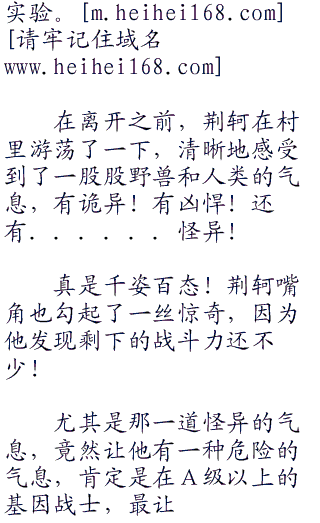 实验。[m.heihei168.com]
[请牢记住域名
www.heihei168.com]
在离开之前，荆轲在村
里游荡了一下，清晰地感受
到了一股股野兽和人类的气
息，有诡异！有凶悍！还
有．．．．．．怪异！
真是千姿百态！荆轲嘴
角也勾起了一丝惊奇，因为
他发现剩下的战斗力还不
少！
尤其是那一道怪异的气
息，竟然让他有一种危险的
气息，肯定是在Ａ级以上的
基因战士，最让